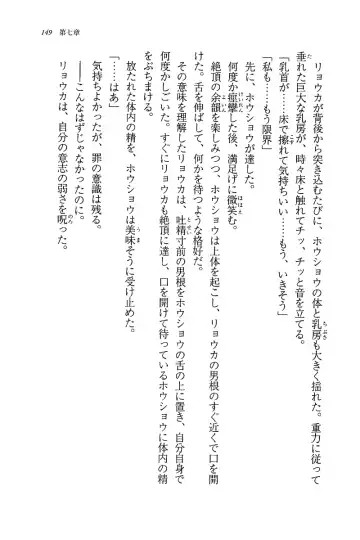 149　第七章
　リョウカが背後から突き込むたびに、ホウショウの体と乳房も大きく揺れた。重力に従って
垂れた巨大な乳房が、時々床と触れてチッ、チッと音を立てる。
「乳首が……床で擦れて気持ちいい……もう、いきそう」
「私も……もう限界」
　先に、ホウショウが達した。
　何度か痙攣した後、満足げに微笑む。
　絶頂の余韻を楽しみつつ、ホウショウは上体を起こし、リョウカの男根のすぐ近くで口を開
けた。舌を伸ばして、何かを待つような格好だ。
　その意味を理解したリョウカは、吐精寸前の男根をホウショウの舌の上に置き、自分自身で
何度かしごいた。すぐにリョウカも絶頂に達し、口を開けて待っているホウショウに体内の精
をぶちまける。
「……はあ」
　放たれた体内の精を、ホウショウは美味そうに受け止めた。
　気持ちよかったが、罪の意識は残る。
　――こんなはずじゃなかったのに。
　リョウカは、自分の意志の弱さを呪った。